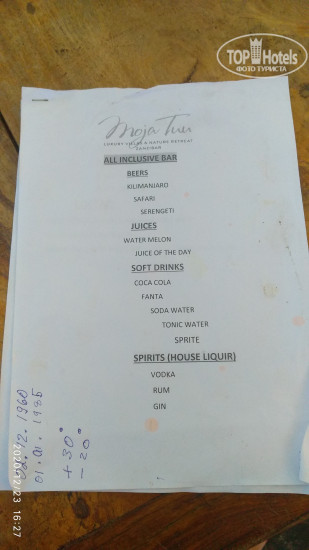 TOP Hotels
ФОТО ТУРИСТА
Moja Tuu
LUXURY VILLAS & NATURE RETREAT
ZANZIBAR
ALL INCLUSIVE BAR
BEERS
KILIMANJARO
SAFARI
SERENGETI
JUICES
WATER MELON
JUICE OF THE DAY
SOFT DRINKS
COCA COLA
FANTA
SODA WATER
TONIC WATER
SPRITE
SPIRITS (HOUSE LIQUIR)
VODKA
RUM
GIN
12. 1960
01. 01. 1985
+30°
-20°
2020/12/23 16:27